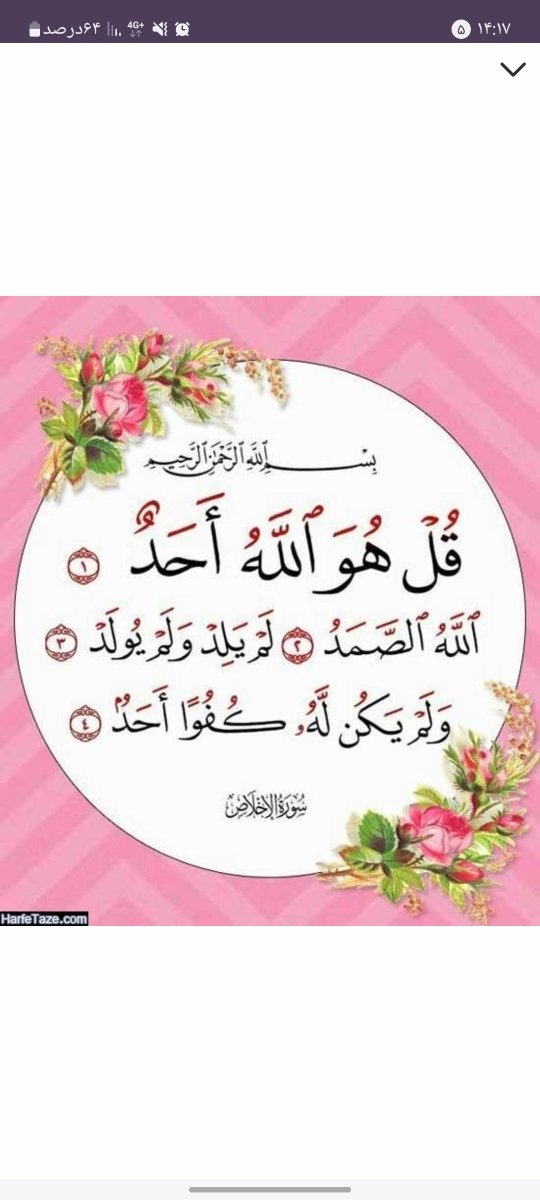 ۱۴:۱۷ ۵ 4G+ ۶۴درصد
بِسْمِ ٱللَّهِ ٱلرَّحْمَٰنِ ٱلرَّحِيمِ
قُلْ هُوَ ٱللَّهُ أَحَدٌ ١
ٱللَّهُ ٱلصَّمَدُ ٢ لَمْ يَلِدْ وَلَمْ يُولَدْ ٣
وَلَمْ يَكُن لَّهُۥ كُفُوًا أَحَدٌۢ ٤
سُورَةُ الإِخْلَاصِ
HarfeTaze.com